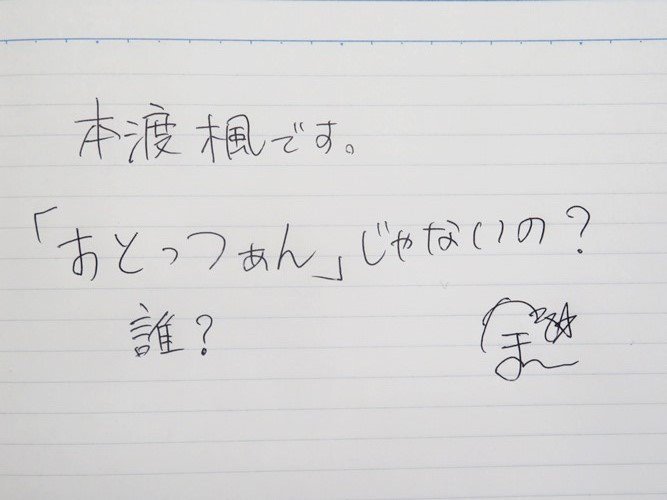 本渡楓です。
「おとっつぁん」じゃないの?
誰?